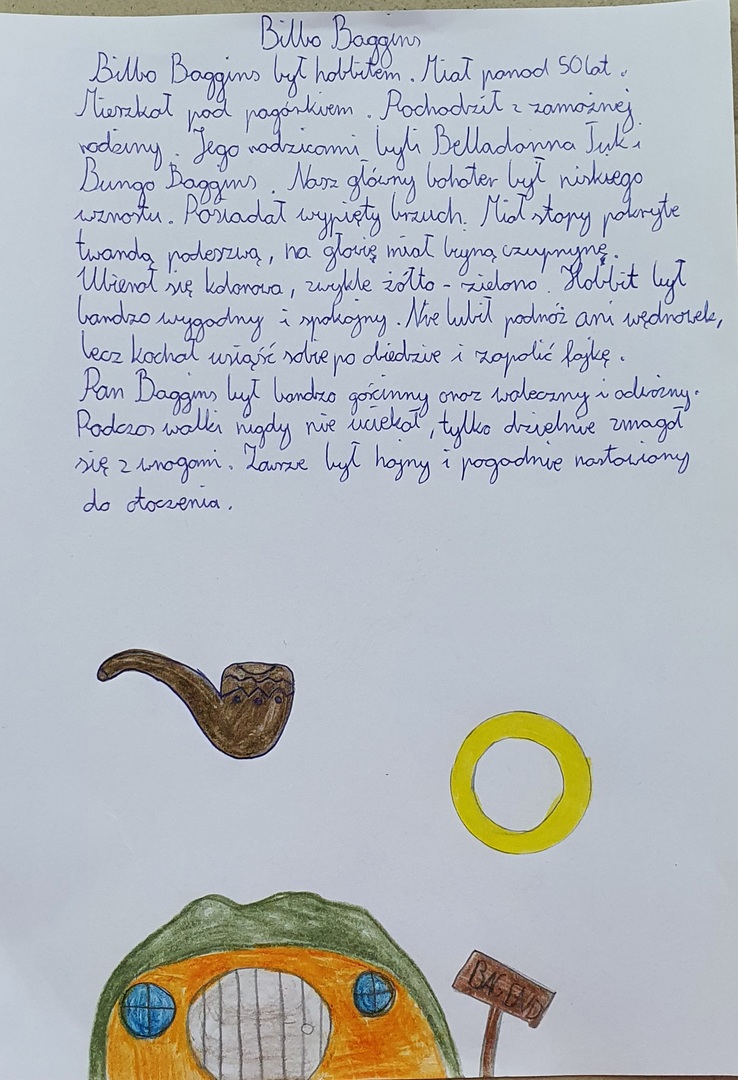 Bilbo Baggins
Bilbo Baggins był hobbitem. Miał ponad 50 lat.
Mieszkał pod pagórkiem. Pochodził z zamożnej
rodziny. Jego rodzicami byli Belladonna Tuk i
Bungo Baggins. Nasz główny bohater był niskiego
wzrostu. Posiadał wypięty brzuch. Miał stopy pokryte
twardą podeszwą, na głowie miał bujną czuprynę.
Ubierał się kolorowo, zwykle żółto - zielono. Hobbit był
bardzo wygodny i spokojny. Nie lubił podróż ani wędrówek,
lecz kochał usiąść sobie po obiedzie i zapalić fajkę.
Pan Baggins był bardzo gościnny oraz waleczny i odważny.
Podczas walki nigdy nie uciekał, tylko dzielnie zmagał
się z wrogami. Zawsze był hojny i pogodnie nastawiony
do otoczenia.
BAG END